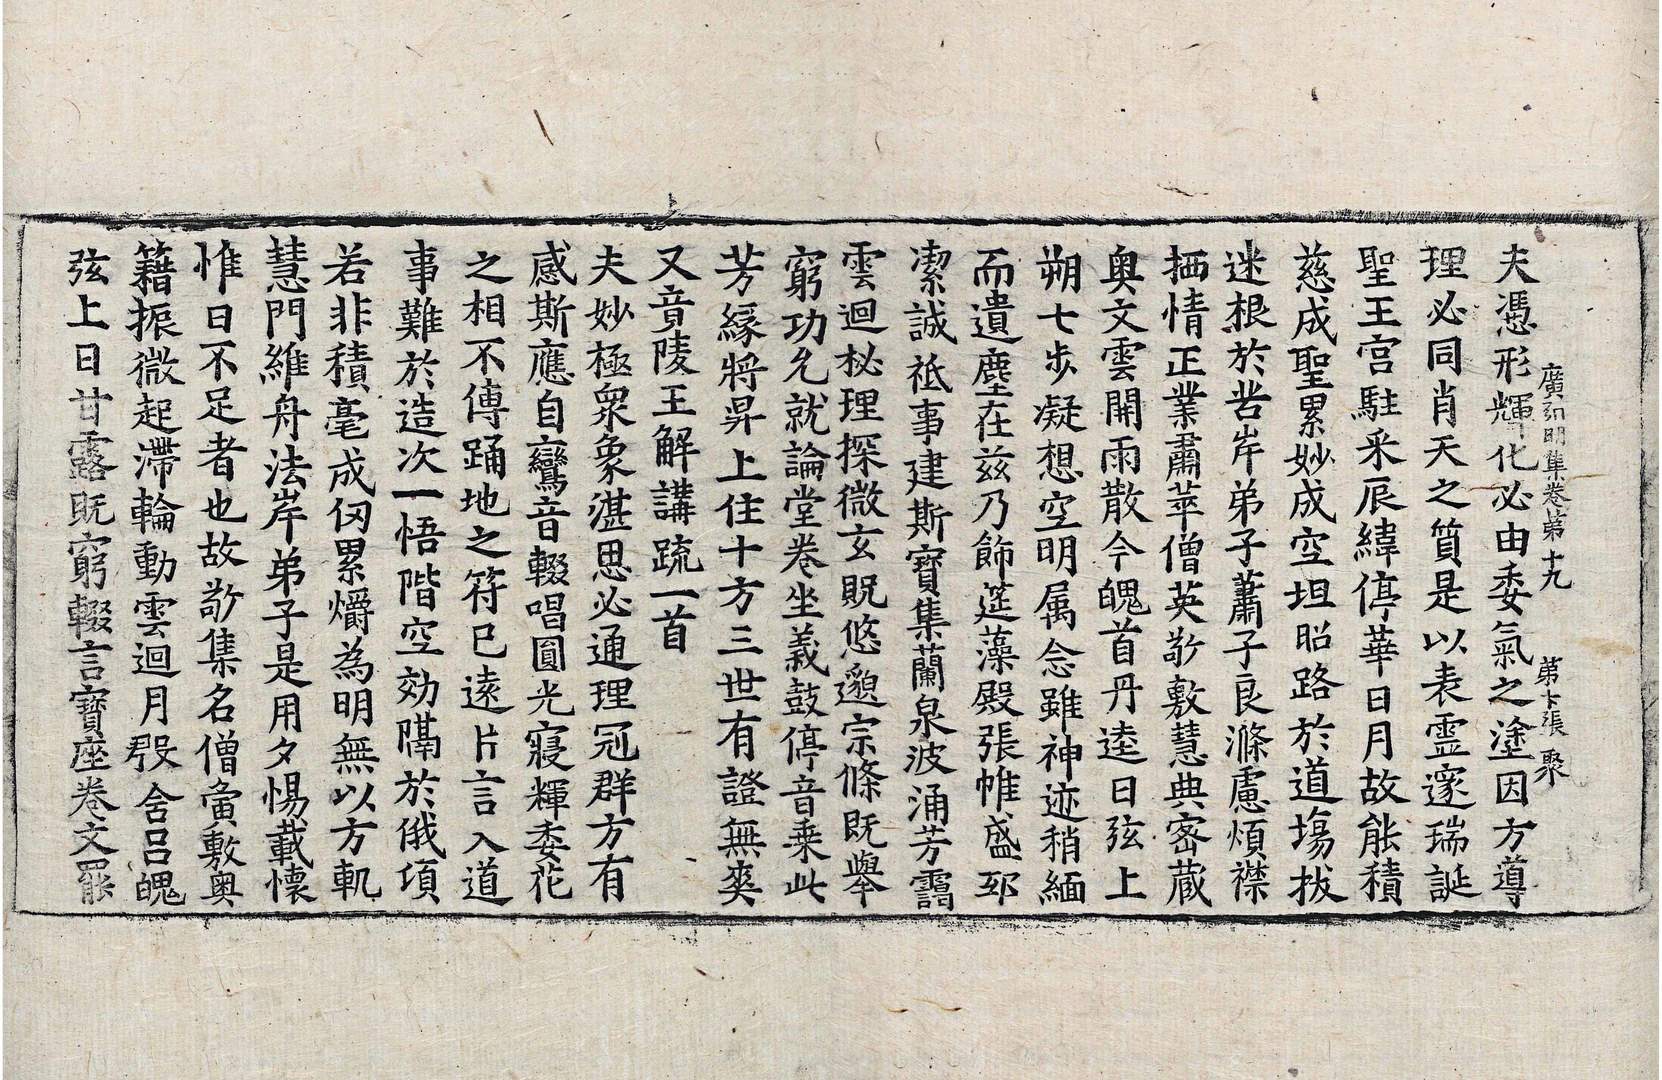 廣弘明集卷第十九 第卞張 聚
夫憑形輝化必由委氣之塗因方導
理必同肖天之質是以表靈邃瑞誕
聖王宮駐采辰緯停華日月故能積
慈成聖累妙成空坦昭路於道場拔
迷根於苦岸弟子蕭子良滌慮煩襟
栖情正業肅萃僧英敬敷慧典密藏
奧文雲開雨散今魄首丹逵日弦上
朔七步凝想空明属念雖神迹稍緬
而遺塵在茲乃飾筵藻殿張帷盛邳
潔誠祗事建斯寶集蘭泉波涌芳靄
雲迴秘理探微玄既悠邈宗條既舉
窮功允就論堂卷坐義鼓停音乗此
芳緣將昇上住十方三世有證無爽
又竟陵王解講疏一首
夫妙極衆象湛思必通理冠群方有
感斯應自鸞音輟唱圓光寢輝委花
之相不傳踊地之符已遠片言入道
事難於造次一悟階空効隔於俄項
若非積毫成仞累爝為明無以方軌
慧門維舟法岸弟子是用夕惕載懷
惟日不足者也故敬集名僧夤敷奧
籍振微起滯輪動雲迴月殷舍吕魄
弦上日甘露既窮輟言寶座卷文罷